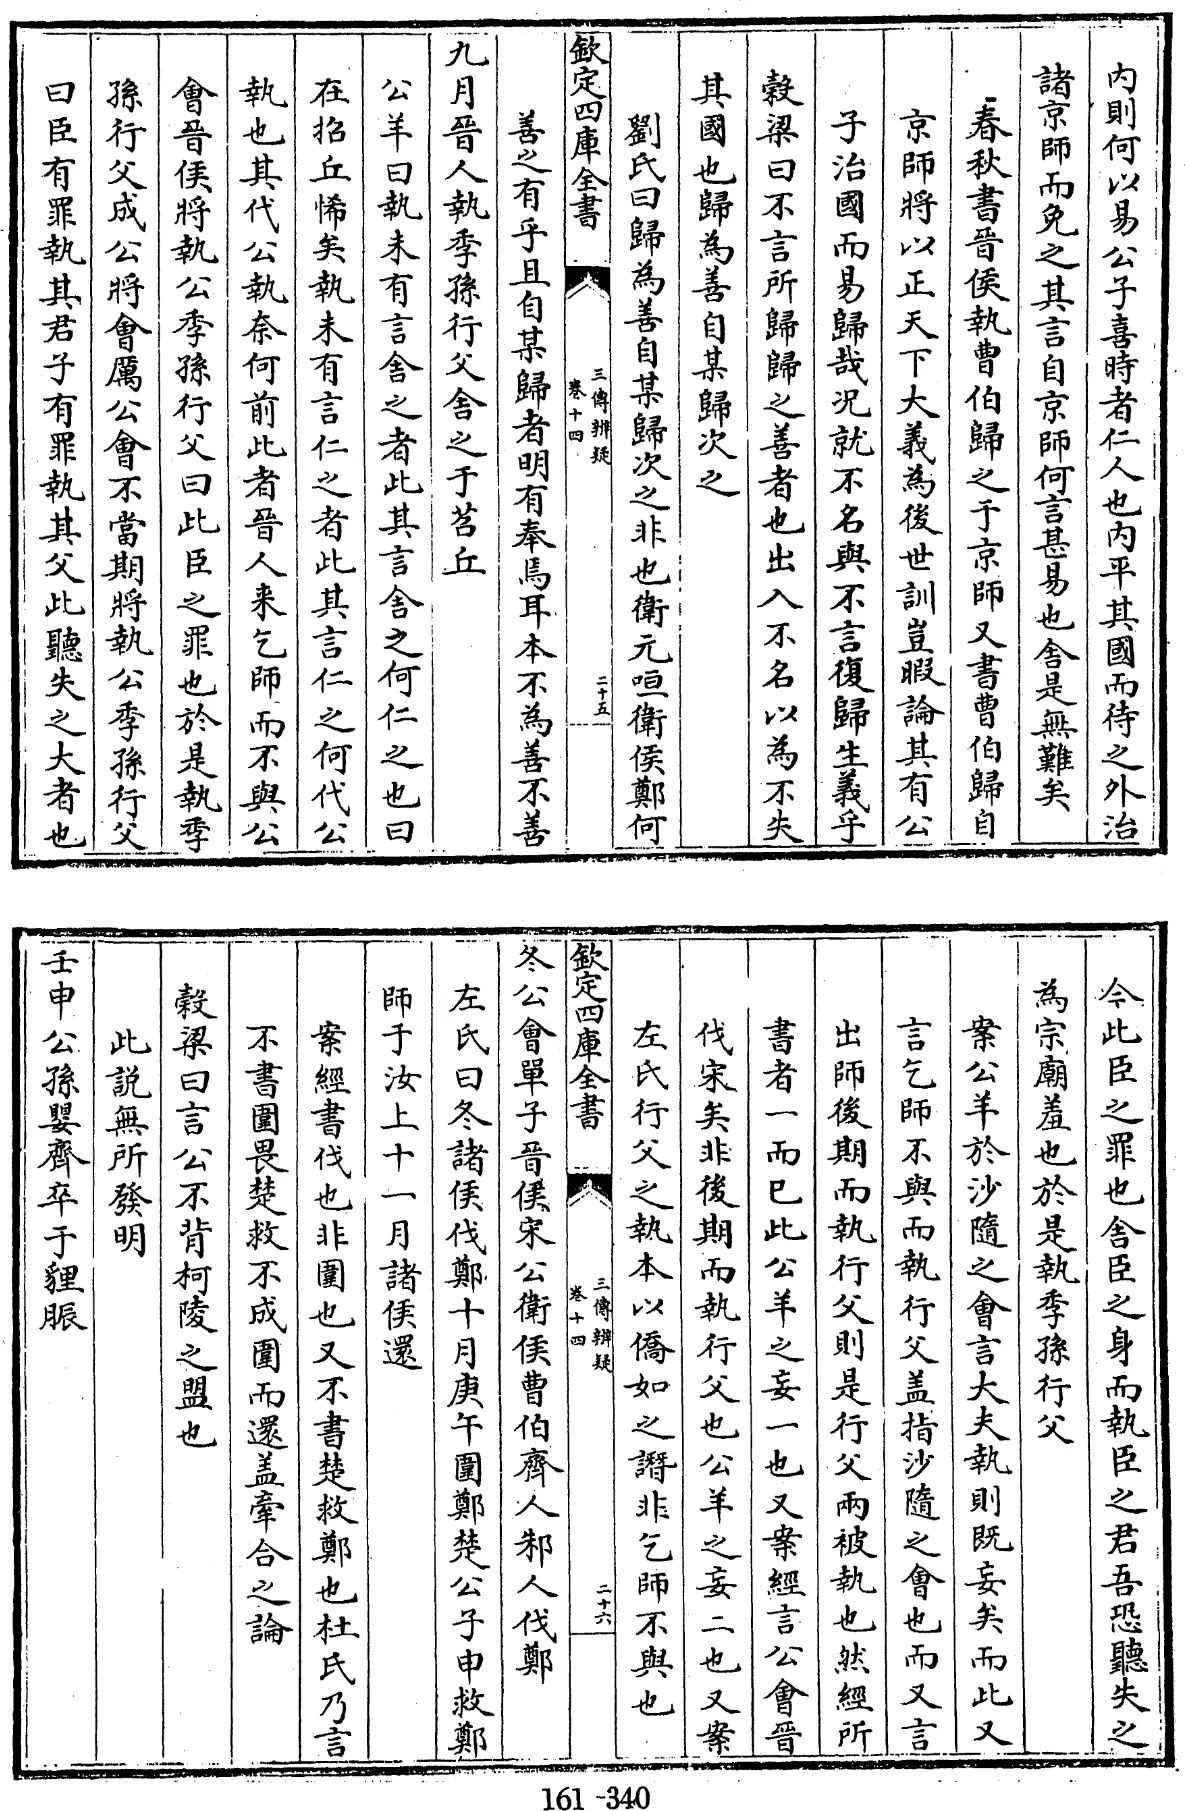 内則何以易公子喜時者仁人也内平其國而待之外治
諸京師而免之其言自京師何言甚易也舍是無難矣
春秋書晉侯執曹伯歸之于京師又書曹伯歸自
京師將以正天下大義為後世訓豈暇論其有公
子治國而易歸哉况就不名與不言復歸生義乎
穀梁曰不言所歸歸之善者也出入不名以為不失
其國也歸為善自某歸次之
劉氏曰歸為善自某歸次之非也衛元咺衛侯鄭何
欽定四庫全書
三傳辨疑
卷十四
二十五
善之有乎且自某歸者明有奉焉耳本不為善不善
九月晉人執季孫行父舍之于苕丘
公羊曰執未有言舍之者此其言舍之何仁之也曰
在招丘悕矣執未有言仁之者此其言仁之何代公
執也其代公執奈何前此者晉人来乞師而不與公
會晉侯將執公季孫行父曰此臣之罪也於是執季
孫行父成公將會厲公會不當期將執公季孫行父
曰臣有罪執其君子有罪執其父此聽失之大者也
今此臣之罪也舍臣之身而執臣之君吾恐聽失之
為宗廟羞也於是執季孫行父
案公羊於沙隨之會言大夫執則既妄矣而此又
言乞師不與而執行父盖指沙隨之會也而又言
出師後期而執行父則是行父兩被執也然經所
書者一而已此公羊之妄一也又案經言公會晉
伐宋矣非後期而執行父也公羊之妄二也又案
左氏行父之執本以僑如之譖非乞師不與也
欽定四庫全書
三傳辨疑
卷十四
二十六
冬公會單子晉侯宋公衛侯曹伯齊人邾人伐鄭
左氏曰冬諸侯伐鄭十月庚午圍鄭楚公子申救鄭
師于汝上十一月諸侯還
案經書伐也非圍也又不書楚救鄭也杜氏乃言
不書圍畏楚救不成圍而還盖牽合之論
穀梁曰言公不背柯陵之盟也
此説無所發明
壬申公孫嬰齊卒于貍脤
161-340